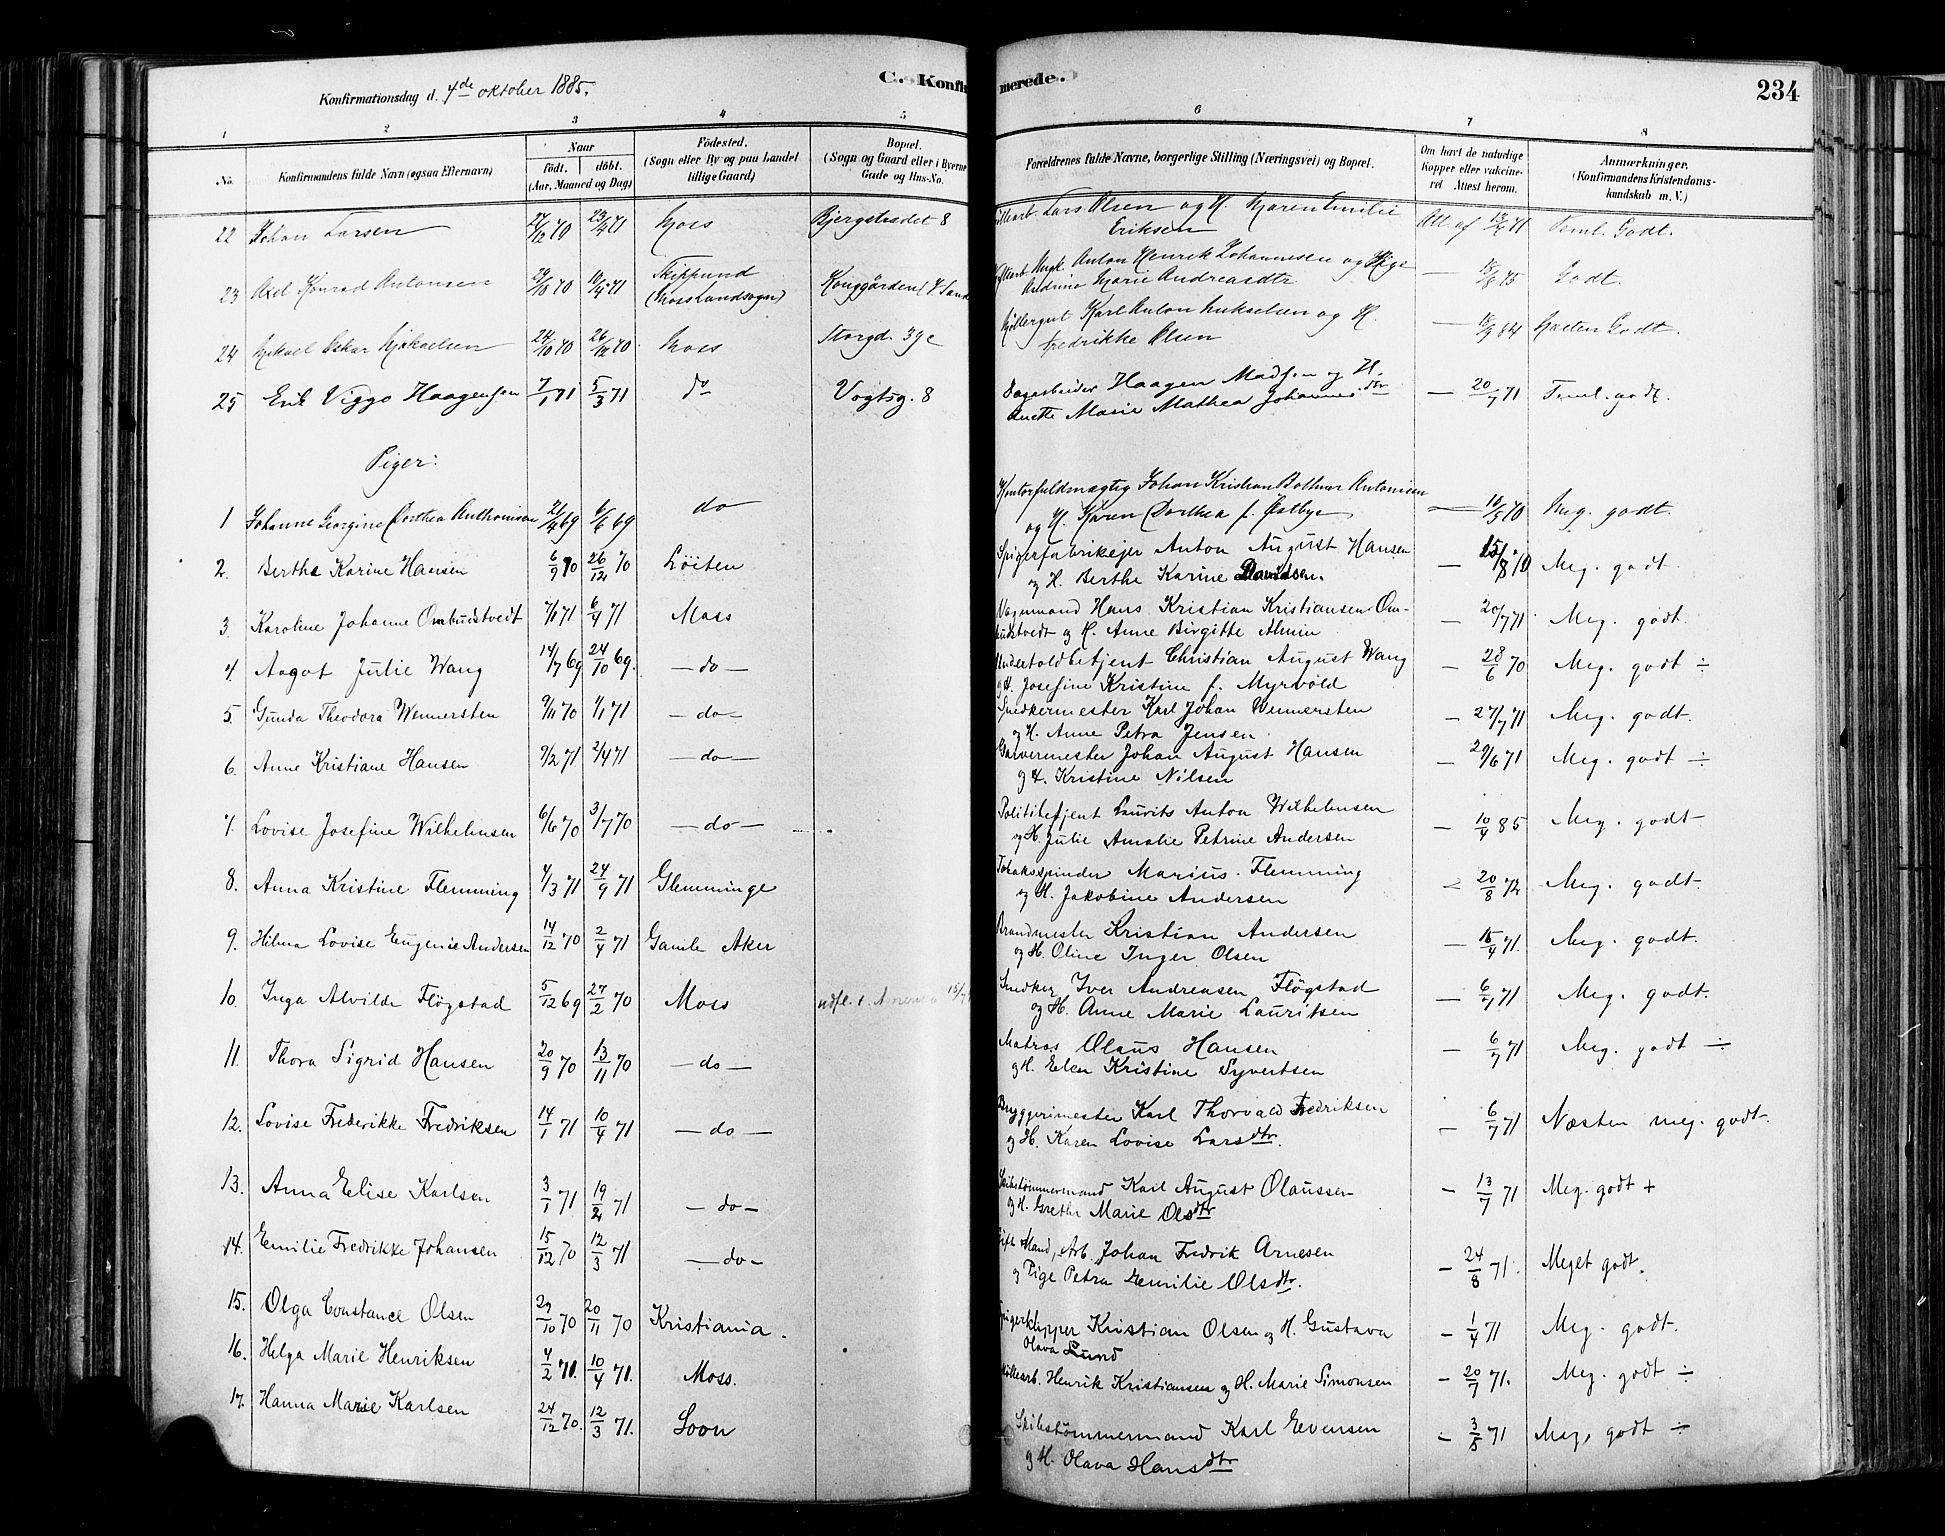 C. Konfirmerede.
234
Konfirmationsdag d. 4de oktober 1885.
1 2 3 4 5 6 7 8
No. Konfirmandens fulde Navn (ogsaa Efternavn) Naar födt. döbt. (Aar, Maaned og Dag) Födested. (Sogn eller By og paa Landet tillige Gaard) Bopæl. (Sogn og Gaard eller i Byerne Gade og Hus-No. Forældrenes fulde Navne, borgerlige Stilling (Næringsvei) og Bopæl. Om havt de naturlige Kopper eller vakcineret Attest herom. Anmærkninger. (Konfirmandens Kristendomskundskab m. V.)
22 Johan Larsen 27/12 70 23/4 71 Moss Bjergstrædet 8 Lars Olsen og H. Maren Emilie
Eriksen Att. af 13/7 71 Teml. Godt.
23 Axel Konrad Antonsen 29/10 70 10/4 71 Skippund
(Moss Landsogn) Konggården Ungk. Anton Henrik Johannesen og Pige
Andrine Marie Andreasdtr — 15/8 75 Godt.
24 Mikael Oskar Mikaelsen 24/10 70 26/12 70 Moss Storgd. 39c Karl Anton Mikaelsen og H.
Fredrikke Olsen — 18/9 84 Næsten Godt.
25 Erik Viggo Haagensen 7/1 71 5/3 71 do Vogtsg. 8 Dagarbeider Haagen Madsen og H.
Anette Marie Mathea Johannesdtr — 20/7 71 Teml. godt.
Piger:
1 Johanne Georgine Dorthea Anthonisen 21/4 69 6/6 69 do Kontorfuldmægtig Johan Kristian Antonisen
og H. Karen Dorthea f. Østbye — 10/5 70 Meg. godt.
2. Berthe Karine Hansen 6/9 70 26/12 70 Löiten Spigerfabrikejer Anton August Hansen
og H. Berthe Karine Davidsen. — 15/8 70 Meg. godt.
3. Karoline Johanne Ombudstvedt 7/1 71 6/4 71 Moss Vognmand Hans Kristian Kristiansen Om-
budstvedt og H. Anne Birgitte Almin — 20/7 71 Meg. godt.
4. Aagot Julie Wang 14/7 69 24/10 69. — do — Undertoldbetjent Christian August Wang
og H. Josefine Kristine f. Myrvold — 28/6 70 Meg. godt ÷
5. Gunda Theodora Wennersten 9/11 70 1/1 71 — do — Snedkermester Karl Johan Wennersten
og H. Anne Petra Jensen — 27/7 71 Meg. godt.
6. Anne Kristiane Hansen 9/2 71 2/4 71 — do — Garvermester Johan August Hansen
og H. Kristine Nilsen — 29/6 71 Meg. godt ÷
7. Lovise Josefine Wilhelmsen 6/6 70 3/7 70 — do — Politibetjent Laurits Anton Wilhelmsen
og H. Julie Amalie Petrine Andersen — 10/4 85 Meg. godt
8. Anna Kristine Flemming 4/3 71 24/9 71 Glemminge Tobaksspinder Marius Flemming
og H. Jakobine Andersen — 20/8 72 Meg. godt.
9. Hilma Lovise Eugenie Andersen 14/12 70 2/4 71 Gamle Aker Brandmester Kristian Andersen
og H. Oline Inger Olsen — 15/4 71. Meg. godt.
10. Inga Alvilde Fløgstad 5/12 69 27/2 70 Moss udfl. t. Snedker Iver Andreasen Fløgstad
og H. Anne Marie Lauritsen — 6/7 71 Meg. godt.
11. Thora Sigrid Hansen 20/9 70 13/11 70 — do — Matros Olaus Hansen
og H. Elen Kristine Syvertsen — 6/7 71 Meg. godt ÷
12. Lovise Frederikke Fredriksen 14/1 71 10/4 71 — do — Bryggerimester Karl Thorvald Fredriksen
og H. Karen Lovise Larsdtr. — 6/7 71 Næsten meg. godt.
13. Anna Elise Karlsen 3/1 71 19/2 71 — do — Skibstömmermand Karl August Olaussen
og H. Grethe Marie Olsdtr — 13/7 71 Meg. godt +
14. Emilie Fredrikke Johansen 15/12 70 12/3 71 — do — Gift Mand, Arb. Johan Fredrik Arnesen
og Pige Petra Emilie Olsdtr. — 24/8 71. Meget godt.
15. Olga Constance Olsen 29/10 70 20/11 70 Kristiania. Spigerklipper Kristian Olsen og H. Gustava
Olava Lund — 1/4 71 Meg. godt.
16. Helga Marie Henriksen 4/2 71. 10/4 71. Moss. Möllearb. Henrik Kristiansen og H. Marie Simonsen — 20/7 71. Meg. godt ÷
17. Hanna Marie Karlsen 24/12 70. 12/3 71. Soon Skibstömmermand Karl Evensen
og H. Olava Hansdtr — 3/8 71 Meg. godt ÷